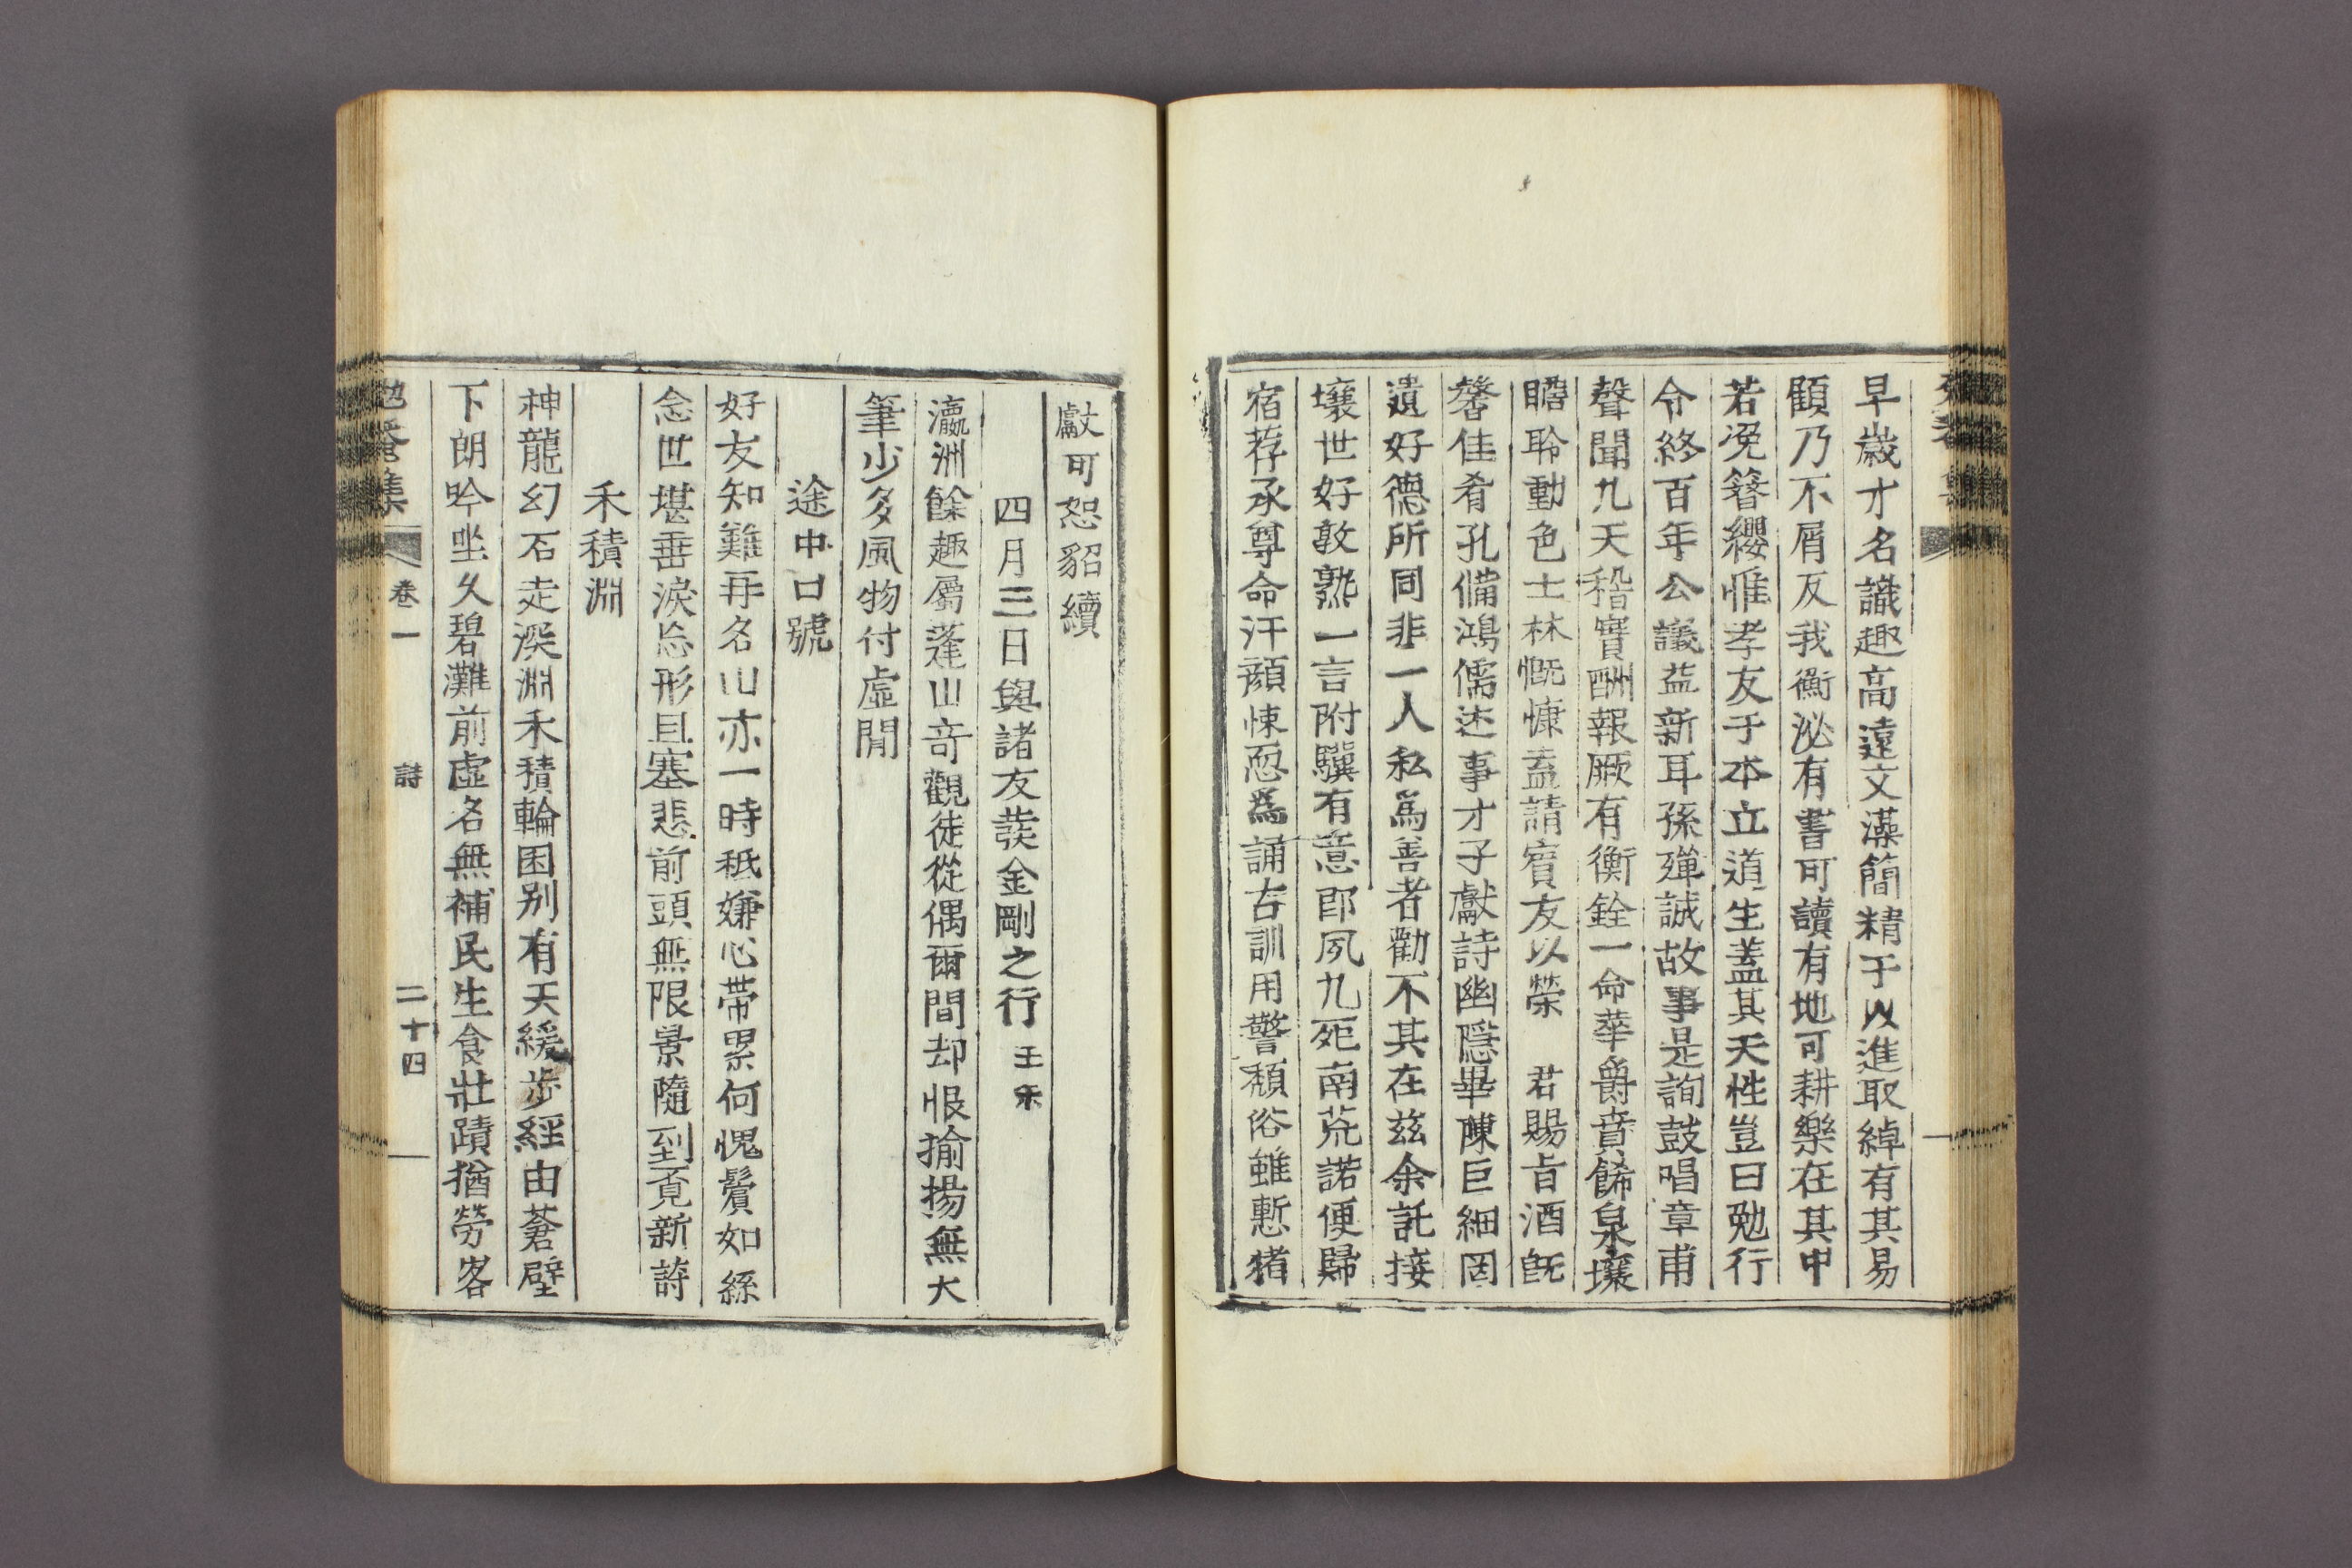 早歲才名識趣高遠文藻簡精于以進取綽有其易
顧乃不屑反我衡泌有書可讀有地可耕樂在其中
若免簪纓惟孝友于本立道生蓋其天性豈曰勉行
令終百年公議益新耳孫殫誠故事是詢鼓唱章甫
聲聞九天稽實酬報厥有衡銓一命華爵賁餙泉壤
瞻聆動色士林慨慷盍請賓友以榮　君賜旨酒旣
馨佳肴孔備鴻儒述事才子獻詩幽隱畢陳巨細罔
遺好德所同非一人私爲善者勸不其在玆余託接
壤世好敦熟一言附驥有意卽夙九死南荒諾便歸
宿荐承尊命汗顔悚恧爲誦古訓用警頹俗雖慙猪
獻可恕貂續
四月三日與諸友裝金剛之行 壬午
瀛洲餘趣屬蓬山奇觀徒從偶爾間却恨揄揚無大
筆少多風物付虛閒
途中口號
好友知難再名山亦一時秪嫌心帶累何愧鬢如絲
念世堪垂淚忘形且塞悲前頭無限景隨到覓新詩
禾積淵
神龍幻石走深淵禾積輪囷别有天緩步經由蒼壁
下朗吟坐久碧灘前虛名無補民生食壯蹟猶勞客
勉菴集
卷一
詩
二十四